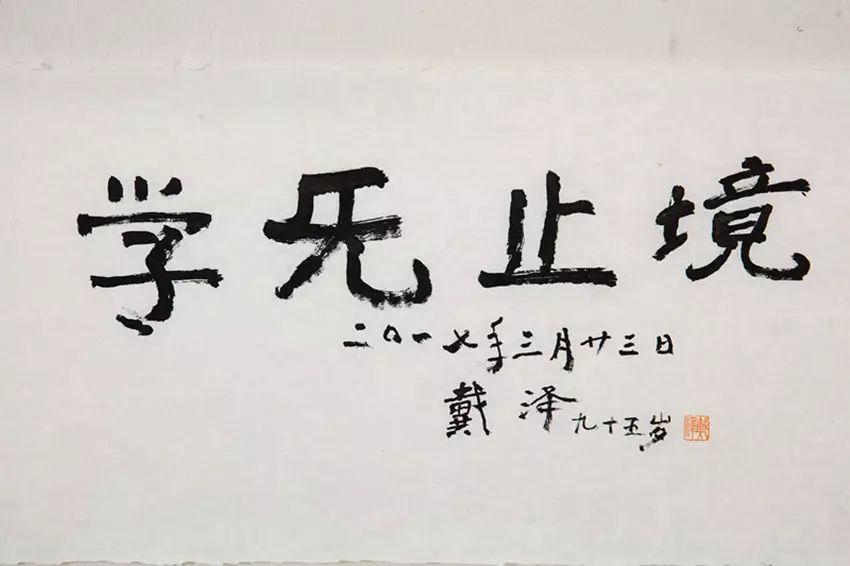 学无止境
二〇一七年三月廿三日
戴泽九十五岁